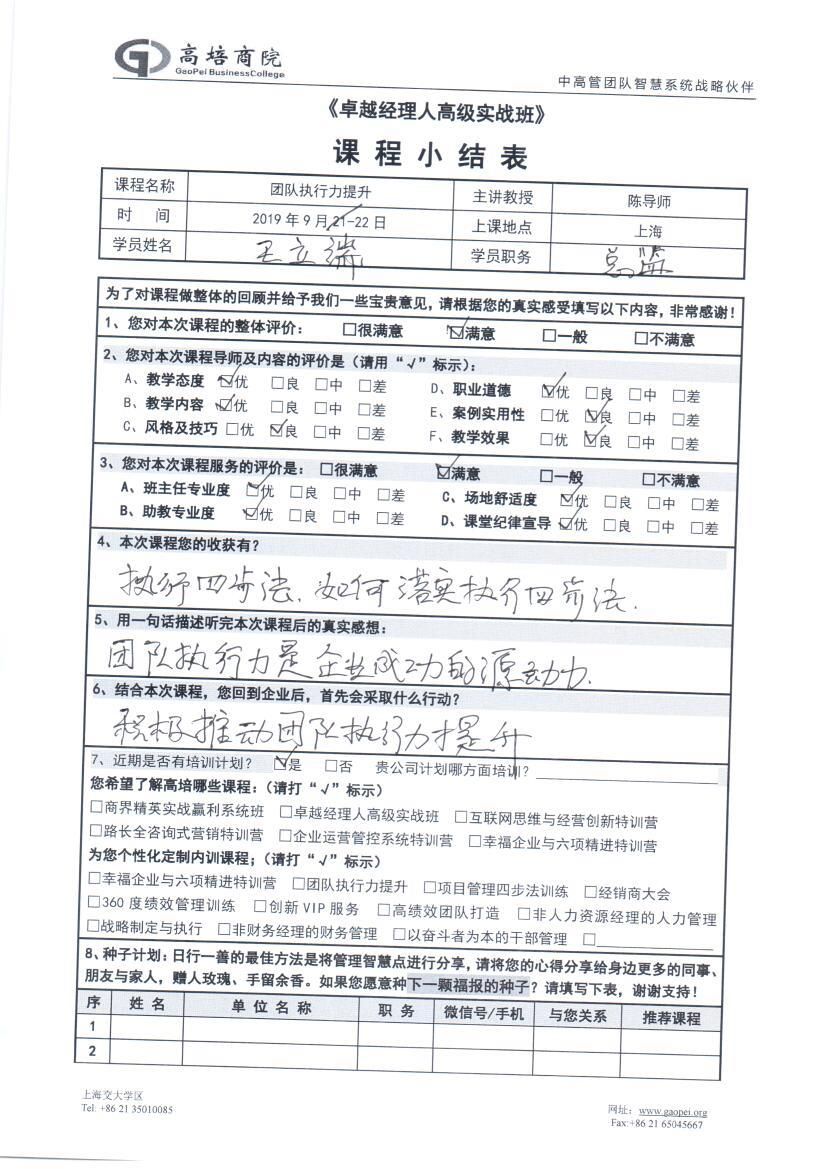 高培商院
GaoPei BusinessCollege
中高管团队智慧系统战略伙伴
《卓越经理人高级实战班》
课程小结表
课程名称 团队执行力提升 主讲教授 陈导师
时 间 2019年9月21-22日 上课地点 上海
学员姓名 王立瑞 学员职务 总监
为了对课程做整体的回顾并给予我们一些宝贵意见,请根据您的真实感受填写以下内容,非常感谢!
1、您对本次课程的整体评价: □很满意 ☑满意 □一般 □不满意
2、您对本次课程导师及内容的评价是(请用“√”标示):
A、教学态度 ☑优 □良 □中 □差 D、职业道德 ☑优 □良 □中 □差
B、教学内容 ☑优 □良 □中 □差 E、案例实用性 □优 ☑良 □中 □差
C、风格及技巧 □优 ☑良 □中 □差 F、教学效果 □优 ☑良 □中 □差
3、您对本次课程服务的评价是: □很满意 ☑满意 □一般 □不满意
A、班主任专业度 ☑优 □良 □中 □差 C、场地舒适度 ☑优 □良 □中 □差
B、助教专业度 ☑优 □良 □中 □差 D、课堂纪律宣导 ☑优 □良 □中 □差
4、本次课程您的收获有?
执行四步法、如何落实执行四步法.
5、用一句话描述听完本次课程后的真实感想:
团队执行力是企业成功的源动力.
6、结合本次课程,您回到企业后,首先会采取什么行动?
积极推动团队执行力提升
7、近期是否有培训计划? ☑是 □否 贵公司计划哪方面培训?
您希望了解高培哪些课程:(请打“√”标示)
□商界精英实战赢利系统班 □卓越经理人高级实战班 □互联网思维与经营创新特训营
□路长全咨询式营销特训营 □企业运营管控系统特训营 □幸福企业与六项精进特训营
为您个性化定制内训课程;(请打“√”标示)
□幸福企业与六项精进特训营 □团队执行力提升 □项目管理四步法训练 □经销商大会
□360度绩效管理训练 □创新VIP服务 □高绩效团队打造 □非人力资源经理的人力管理
□战略制定与执行 □非财务经理的财务管理 □以奋斗者为本的干部管理 □
8、种子计划:日行一善的最佳方法是将管理智慧点进行分享,请将您的心得分享给身边更多的同事、
朋友与家人,赠人玫瑰、手留余香。如果您愿意种下一颗福报的种子?请填写下表,谢谢支持!
序 姓名 单位名称 职务 微信号/手机 与您关系 推荐课程
1
2
上海交大学区
Tel: +86 21 35010085
网址: www.gaopei.org
Fax:+86 21 65045667